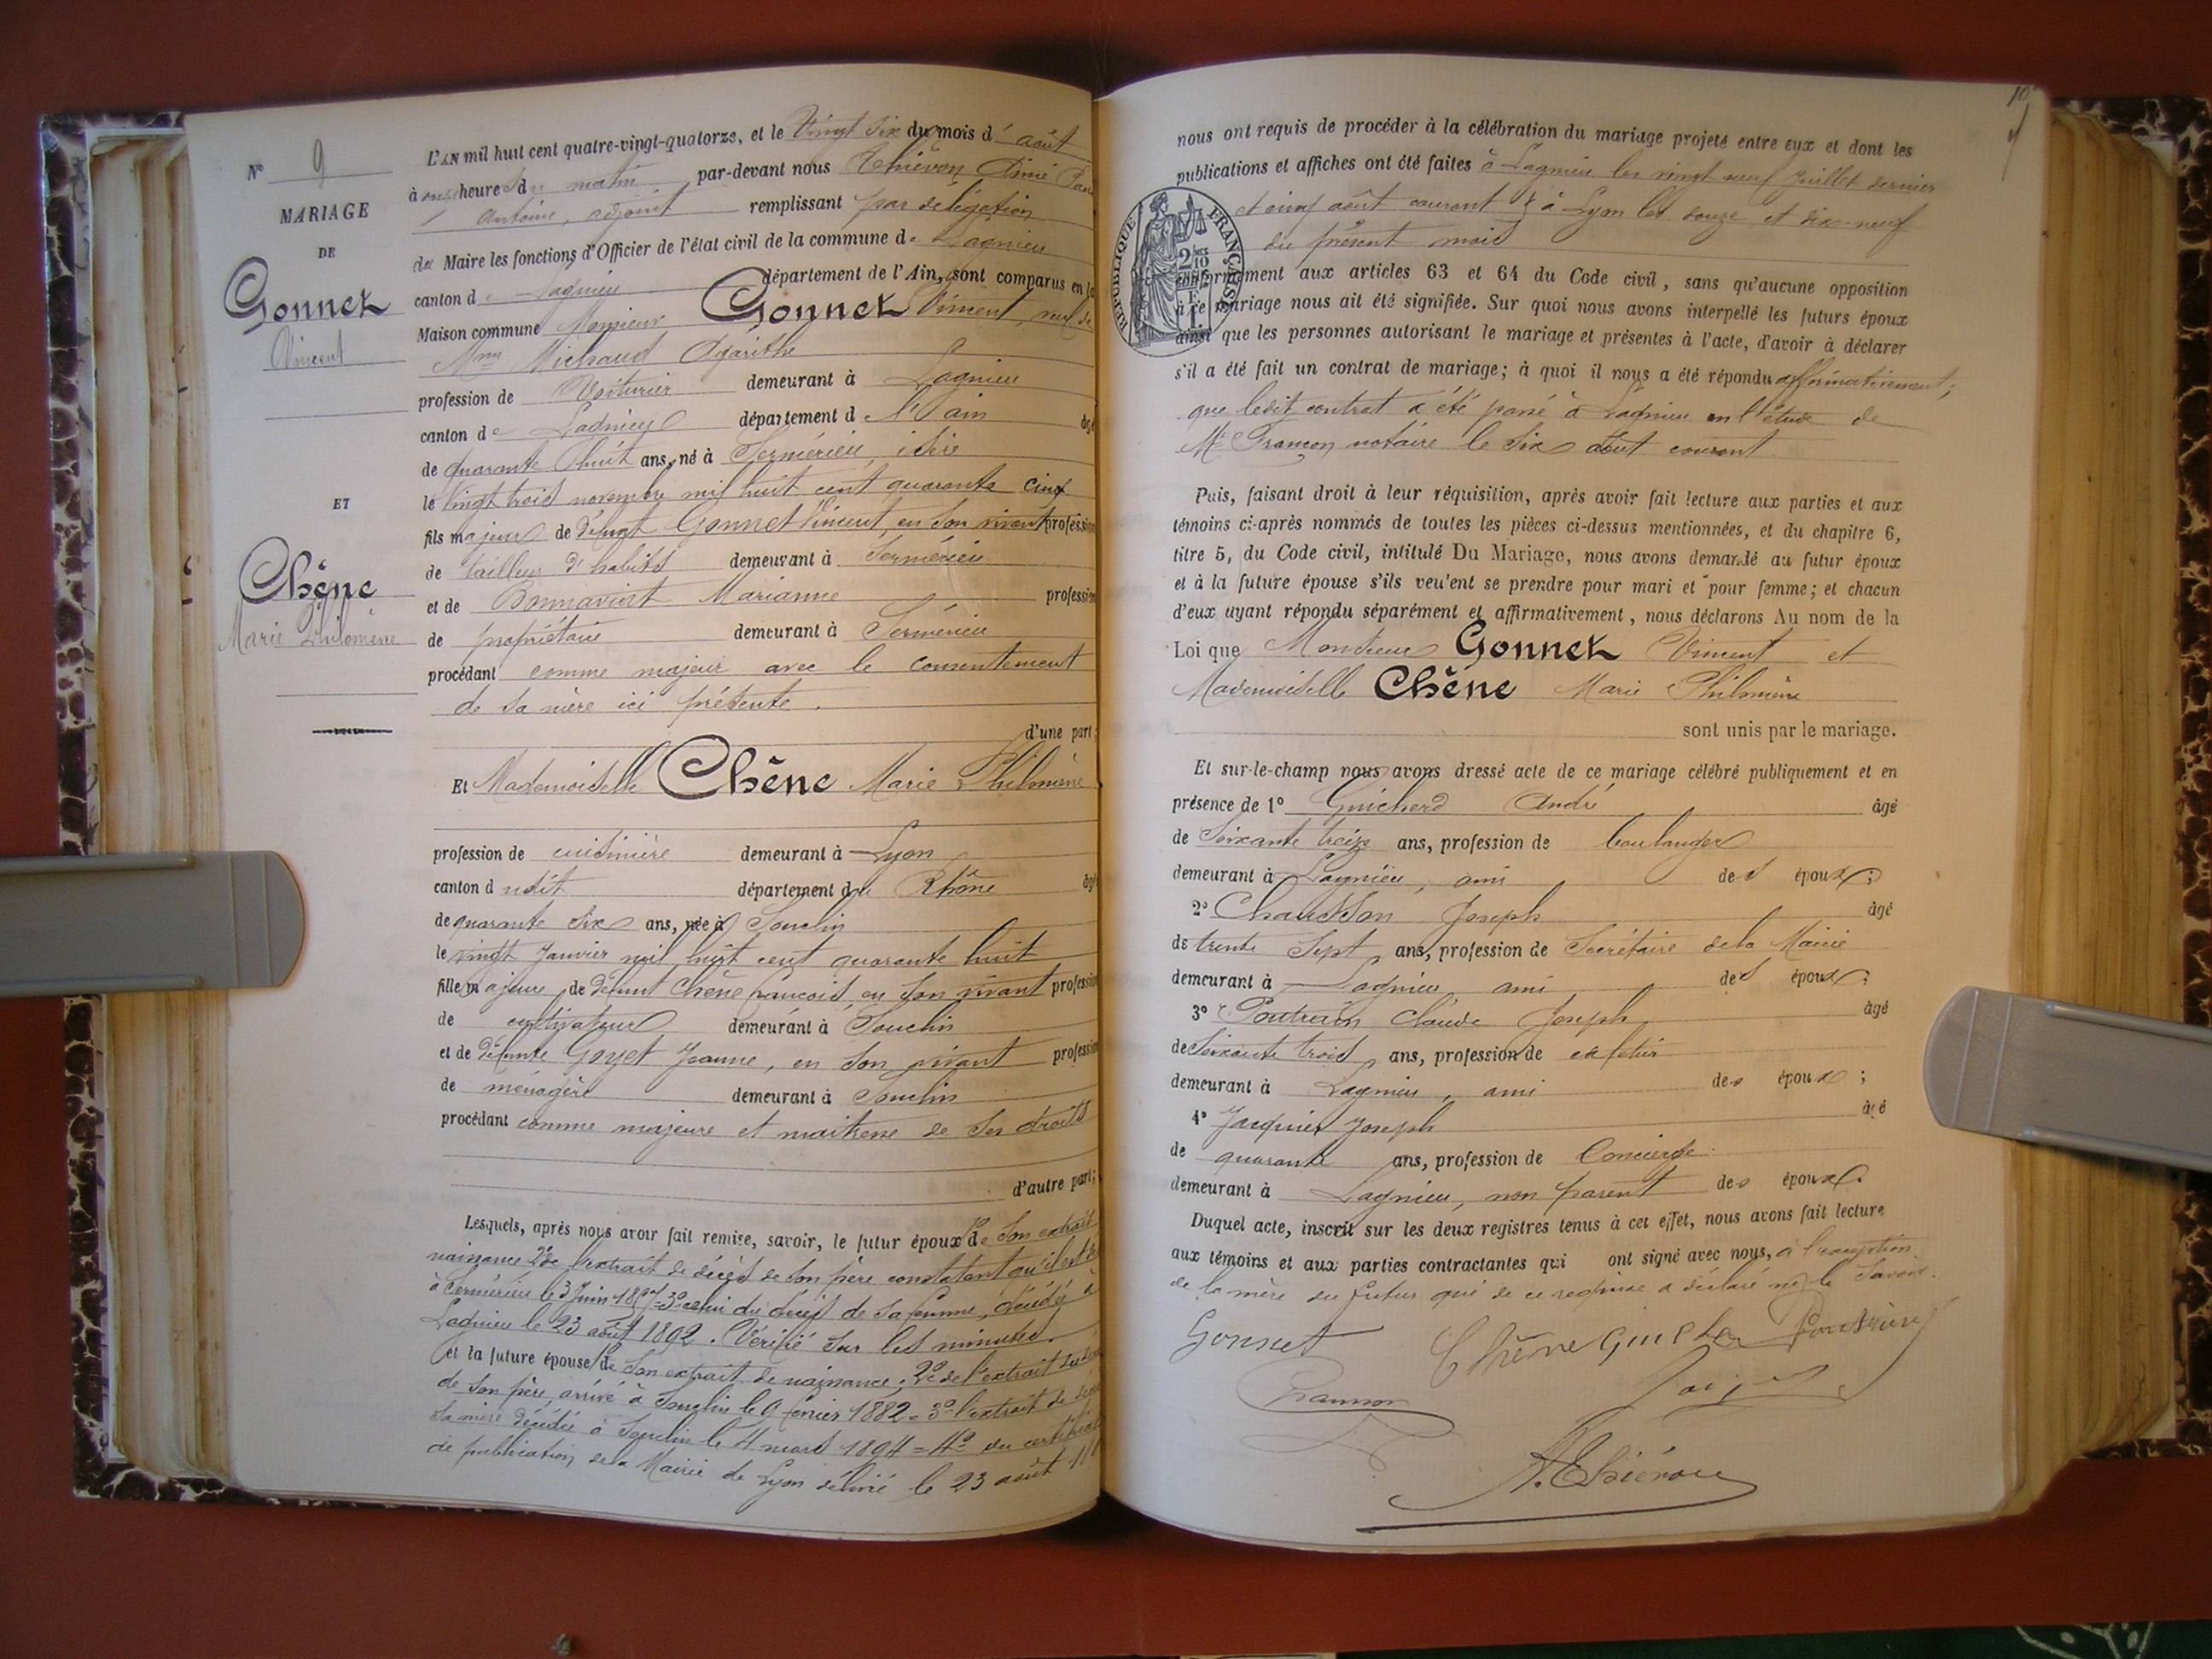 N° 9
MARIAGE
DE
Gonnet
Vincent
ET
Chêne
Marie Philomène
L'AN mil huit cent quatre-vingt-quatorze, et le Vingt six du mois d' août
à onze heures du matin par-devant nous Thiévon Aimé
Antoine, adjoint remplissant par délégation
du Maire les fonctions d'Officier de l'état civil de la commune de Lagnieu
canton de Lagnieu département de l'Ain, sont comparus en la
Maison commune Monsieur Gonnet Vincent, veuf de
Mme Michaud Agarithe
profession de Voiturier demeurant à Lagnieu
canton de Lagnieu département de l'ain âgé
de quarante huit ans, né à Sermérieu, isère
le vingt trois novembre mil huit cent quarante cinq
fils majeur de défunt Gonnet Vincent, en son vivant profession
de tailleur d'habits demeurant à Sermérieu
et de Bonnaviat Marianne profession
de propriétaire demeurant à Sermérieu
procédant comme majeur avec le consentement
de sa mère ici présente.
d'une part;
Et Mademoiselle Chêne Marie Philomène
profession de cuisinière demeurant à Lyon
canton dudit département du Rhône âgé
de quarante six ans, née à Souclin
le vingt Janvier mil huit cent quarante huit
fille majeure de défunt Chêne françois, en son vivant profession
de cultivateur demeurant à Souclin
et de défunte Goyet Jeanne, en son vivant profession
de ménagère demeurant à Souclin
procédant comme majeure et maitresse de ses droits
d'autre part;
Lesquels, après nous avoir fait remise, savoir, le futur époux 1° de son extrait
naissance 2° de l'extrait de décès de son père constatant qu'il est
à Sermérieu le 3 Juin 18 3° celui du décès de sa femme, décédée à
Lagnieu le 23 août 1892. Vérifié sur les minutes.
et la future épouse 1° de son extrait de naissance; 2° de l'extrait
de son père, arrivé à Souclin le 9 février 1882 = 3° l'extrait de décès
sa mère décédée à Souclin le 4 mars 1894 = 4° du certificat
de publication de la Mairie de Lyon délivré le 23 août
10
nous ont requis de procéder à la célébration du mariage projeté entre eux et dont les
publications et affiches ont été faites à Lagnieu les vingt neuf Juillet dernier
et cinq août courant & à Lyon les douze et dix-neuf
du présent mois
RÉPUBLIQUE FRANÇAISE
conformément aux articles 63 et 64 du Code civil, sans qu'aucune opposition
à ce mariage nous ait été signifiée. Sur quoi nous avons interpellé les futurs époux
ainsi que les personnes autorisant le mariage et présentes à l'acte, d'avoir à déclarer
s'il a été fait un contrat de mariage; à quoi il nous a été répondu affirmativement;
que ledit contrat a été passé à Lagnieu en l'étude de
Me Françon notaire le six août courant.
Puis, faisant droit à leur réquisition, après avoir fait lecture aux parties et aux
témoins ci-après nommés de toutes les pièces ci-dessus mentionnées, et du chapitre 6,
titre 5, du Code civil, intitulé Du Mariage, nous avons demandé au futur époux
et à la future épouse s'ils veulent se prendre pour mari et pour femme; et chacun
d'eux ayant répondu séparément et affirmativement, nous déclarons Au nom de la
Loi que Monsieur Gonnet Vincent et
Mademoiselle Chêne Marie Philomène
sont unis par le mariage.
Et sur-le-champ nous avons dressé acte de ce mariage célébré publiquement et en
présence de 1° Guicherd André âgé
de Soixante treize ans, profession de boulanger
demeurant à Lagnieu, ami des époux;
2° Chausson Joseph âgé
de trente sept ans, profession de Secrétaire de la Mairie
demeurant à Lagnieu ami des époux;
3° Claude Joseph âgé
de Soixante trois ans, profession de
demeurant à Lagnieu, ami des époux;
4° Jacquier Joseph âgé
de quarante ans, profession de Concierge
demeurant à Lagnieu, non parent des époux.
Duquel acte, inscrit sur les deux registres tenus à cet effet, nous avons fait lecture
aux témoins et aux parties contractantes qui ont signé avec nous, à l'exception
de la mère du futur qui de ce requise a déclaré ne le savoir.
Gonnet Chêne
A. Thiévon